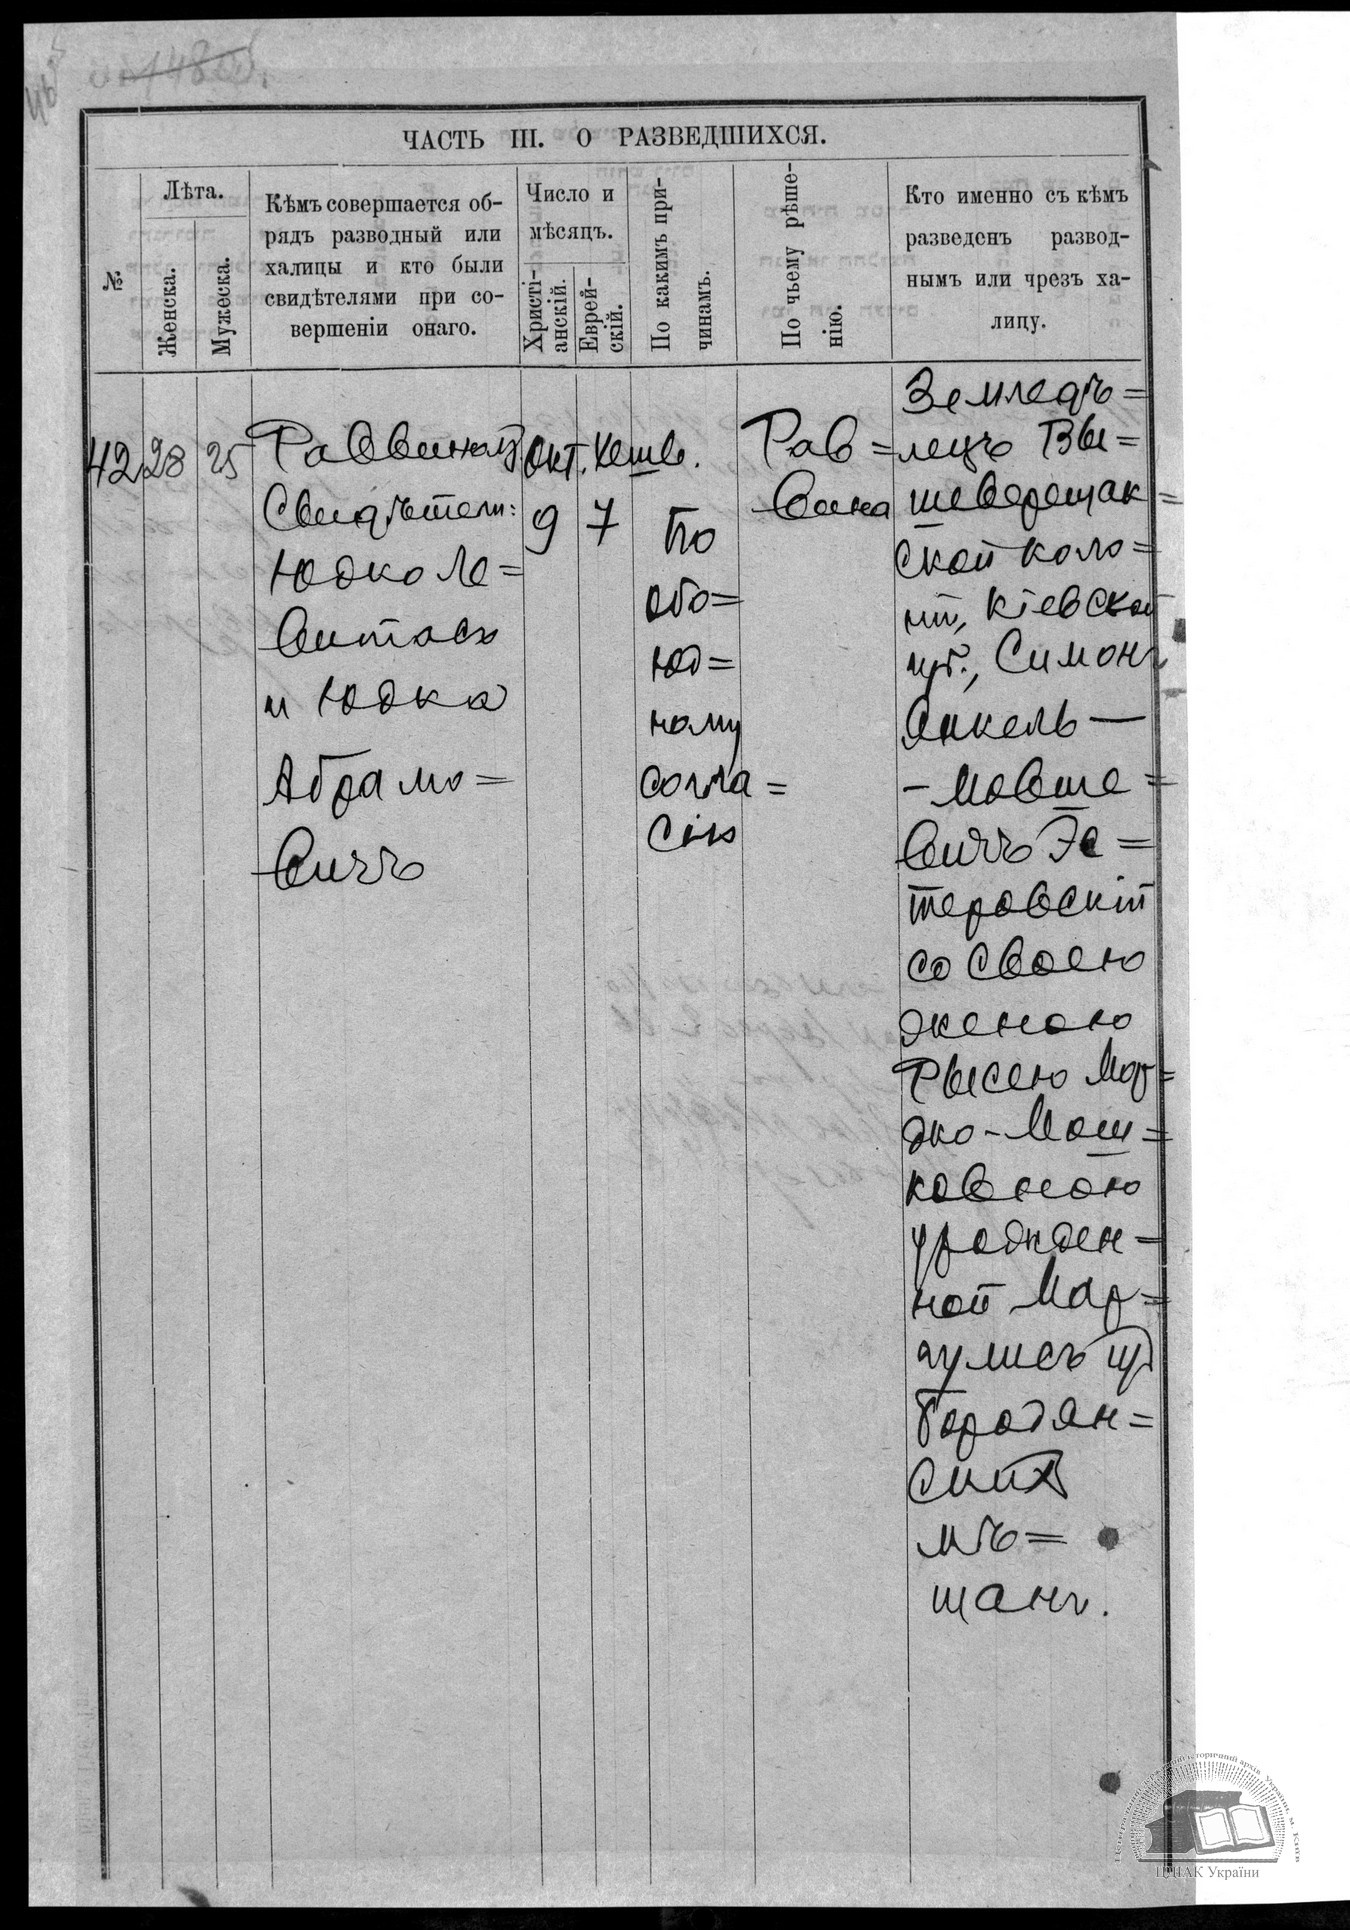 ЧАСТЬ III. О РАЗВЕДШИХСЯ.
№
Лѣта.
Женска.
Мужеска.
Кѣмъ совершается об-
рядъ разводный или
халицы и кто были
свидѣтелями при со-
вершеніи онаго.
Число и
мѣсяцъ.
Христі-
анскій.
Еврей-
скій.
По какимъ при-
чинамъ.
По чьему рѣше-
нію.
Кто именно съ кѣмъ
разведенъ развод-
нымъ или чрезъ ха-
лицу.
42
28
25
Раввиномъ
Свидѣтели:
Юдко Ле=
витасъ
и Юдка
Абрамо=
вичъ
Окт.
9
Хешв.
7
По
обо=
юд=
ному
согла=
сію
Рав=
вина
Земледѣ=
лецъ Вы=
шеверещак=
ской коло=
ніи, Кіевской
губ., Симонъ
Янкель—
-Мовше=
вичъ Эс=
теровскій
со своею
женою
Рысею Мор=
дко-Мош=
ковною
урожден=
ной Мар=
гулисъ изъ
Бородян=
скихъ
мѣ=
щанъ.
ЦДІАК України